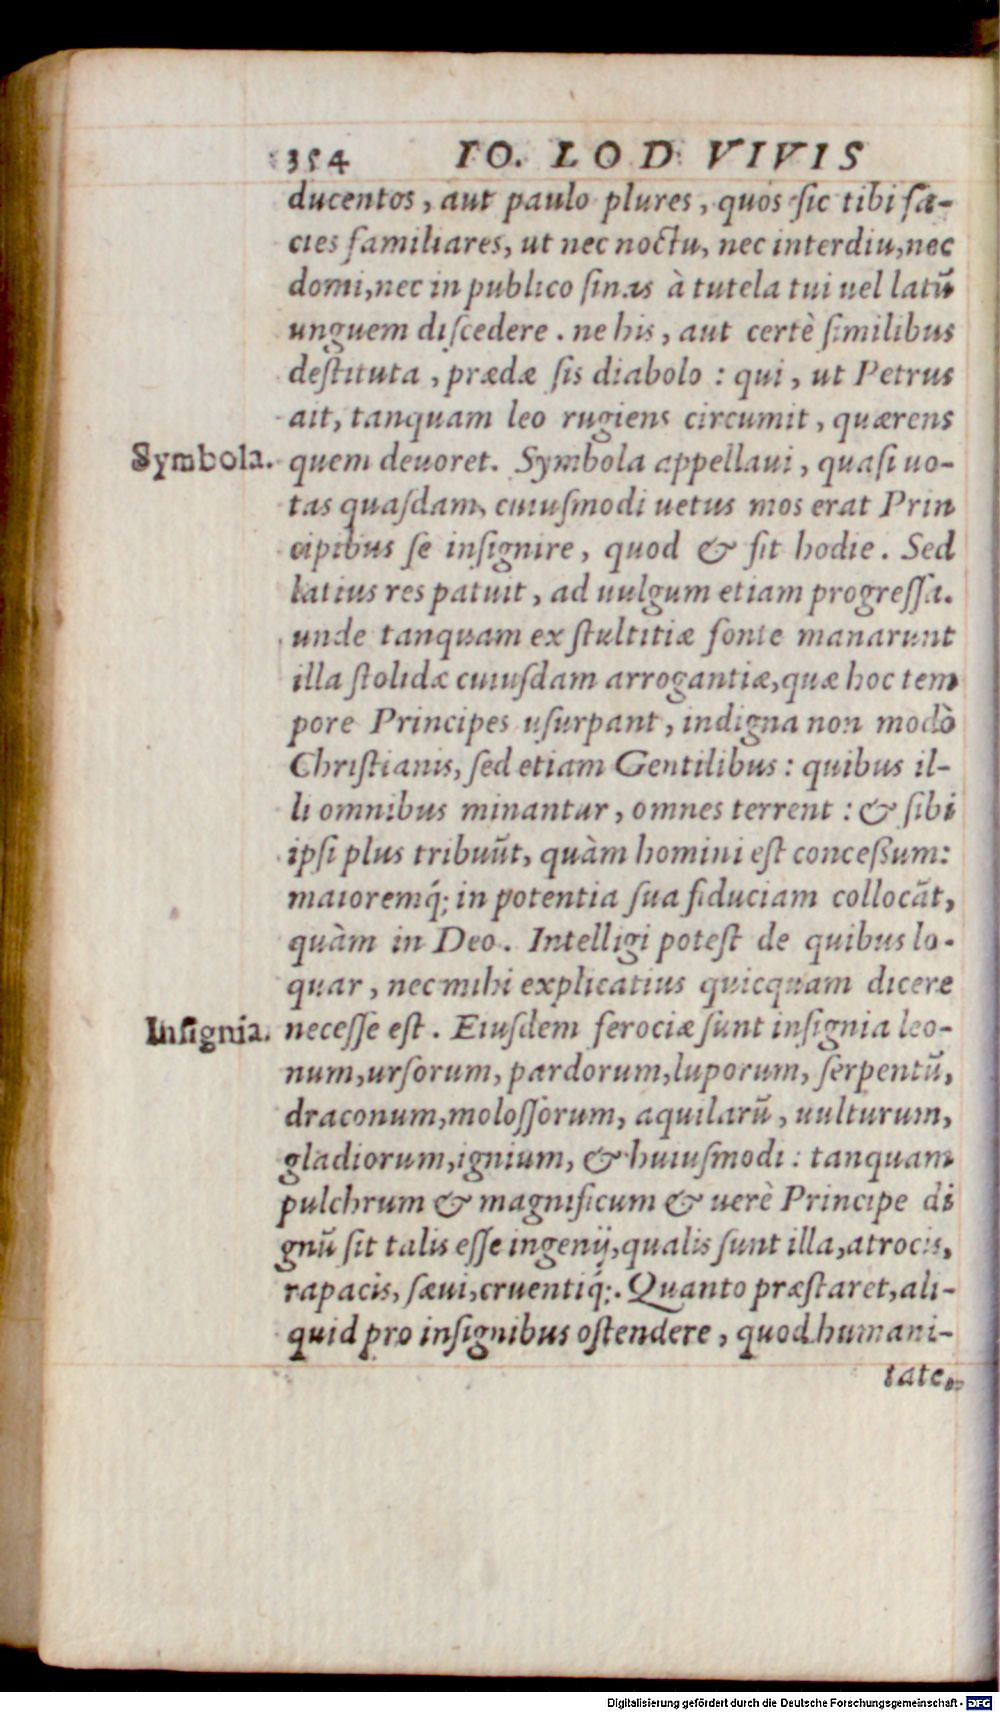 354 IO. LOD. VIVIS
ducentos, aut paulo plures, quos sic tibi fa-
cies familiares, ut nec noctu, nec interdiu, nec
domi, nec in publico sinas à tutela tui uel latũ
unguem discedere. ne his, aut certè similibus
destituta, prædæ sis diabolo: qui, ut Petrus
ait, tanquam leo rugiens circumit, quærens
Symbola. quem deuoret. Symbola appellaui, quasi uo-
tas quasdam, cuiusmodi uetus mos erat Prin
cipibus se insignire, quod & fit hodie. Sed
latius res patuit, ad uulgum etiam progressa.
unde tanquam ex stultitiæ fonte manarunt
illa stolidæ cuiusdam arrogantiæ, quæ hoc tem
pore Principes usurpant, indigna non modò
Christianis, sed etiam Gentilibus: quibus il-
li omnibus minantur, omnes terrent: & sibi
ipsi plus tribuũt, quàm homini est conceßum:
maioremq́; in potentia sua fiduciam collocãt,
quàm in Deo. Intelligi potest de quibus lo-
quar, nec mihi explicatius quicquam dicere
Insignia. necesse est. Eiusdem ferociæ sunt insignia leo-
num, ursorum, pardorum, luporum, serpentũ,
draconum, molossorum, aquilarũ, uulturum,
gladiorum, ignium, & huiusmodi: tanquam
pulchrum & magnificum & uerè Principe di
gnũ sit talis esse ingenij, qualis sunt illa, atrocis,
rapacis, sæui, cruentiq́;. Quanto præstaret, ali-
quid pro insignibus ostendere, quod humani-
tate,
Digitalisierung gefördert durch die Deutsche Forschungsgemeinschaft - DFG